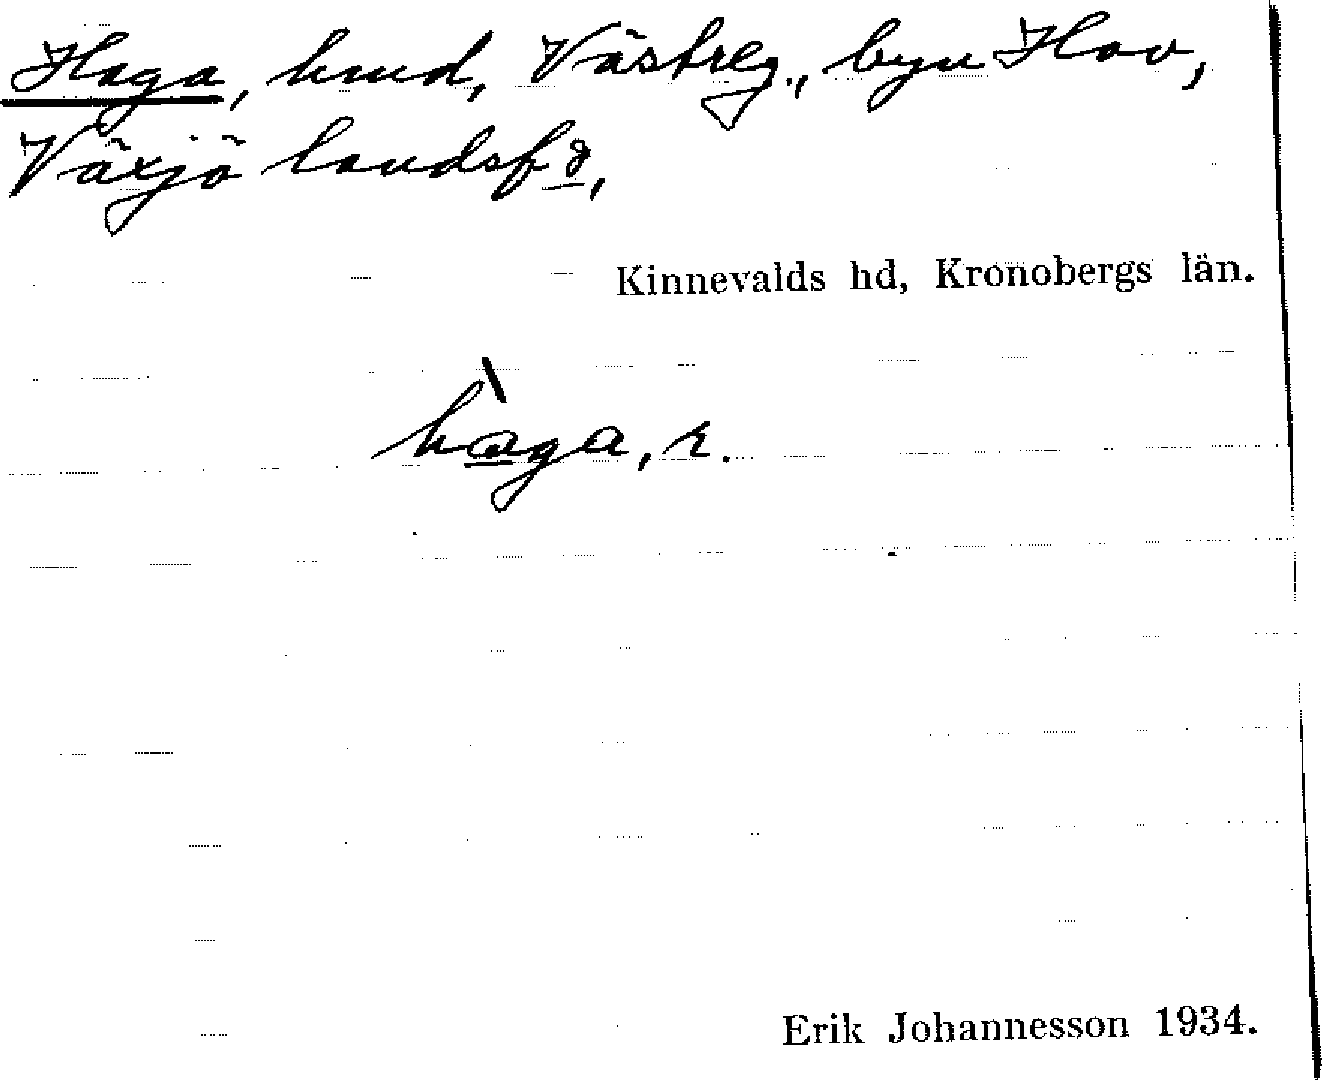 Haga, hmd, Västreg., byn Hov,
Växjö landsfd,
Kinnevalds hd, Kronobergs län.
hàga, r.
Erik Johannesson 1934.